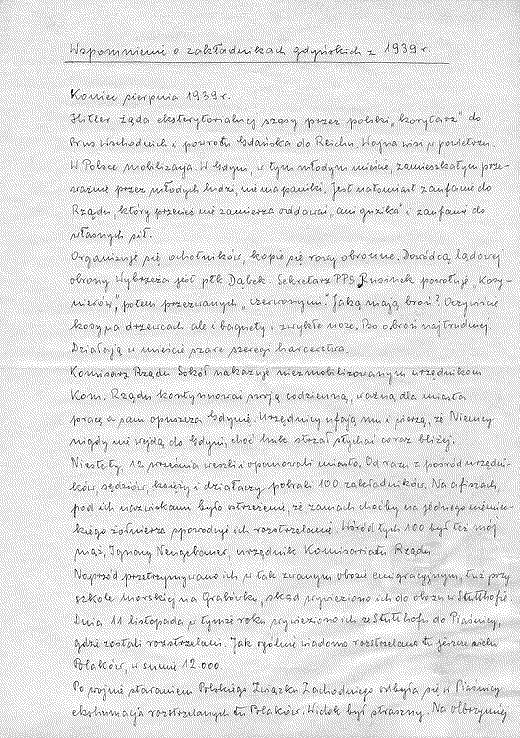 Wspomnienie o zakładnikach gdyńskich z 1939 r.
Koniec sierpnia 1939 r.
Hitler żąda eksterytorialnej szosy przez polski „korytarz” do
Prus Wschodnich i powrotu Gdańska do Reichu. Wojna wisi w powietrzu.
W Polsce mobilizacja. W Gdyni, w tym młodym mieście, zamieszkałym prze-
ważnie przez młodych ludzi, nie ma paniki. Jest natomiast zaufanie do
Rządu, który przecież nie zamierza oddawać „ani guzika” i zaufanie do
własnych sił.
Organizuje się ochotników, kopie się rowy obronne. Dowódcą lądowej
obrony Wybrzeża jest płk Dąbek. Sekretarz PPS Rusinek powołuje „Kosy-
nierów”, potem przezwanych „czerwonymi”. Jaką mają broń? Oczywiście
kosy na drzewcach ale i bagnety i zwykłe noże. Bo o broń najtrudniej.
Działają w mieście szare szeregi harcerstwa.
Komisarz Rządu Sokół nakazuje niezmobilizowanym urzędnikom
Kom. Rządu kontynuować swoją codzienną, ważną dla miasta
pracę a sam opuszcza Gdynię. Urzędnicy ufają mu i wierzą, że Niemcy
nigdy nie wejdą do Gdyni, choć huk strzał słychać coraz bliżej.
Niestety, 12 września weszli i opanowali miasto. Od razu z pośród urzędni-
ków, sędziów, księży i działaczy pobrali 100 zakładników. Na afiszach,
pod ich nazwiskami było ostrzeżenie, że zamach choćby na jednego niemiec-
kiego żołnierza spowoduje ich rozstrzelanie. Wśród tych 100 był też mój
mąż, Ignacy Neugebauer, urzędnik Komisariatu Rządu.
Naprzód przetrzymywano ich w tak zwanym obozie emigracyjnym, tuż przy
szkole morskiej na Grabówku, skąd wywieziono ich do obozu w Stutthofie.
Dnia 11 listopada w tymże roku wywieziono ich ze Stutthofu do Piaśnicy,
gdzie zostali rozstrzelani. Jak ogólnie wiadomo rozstrzelano tu jeszcze wielu
Polaków, w sumie 12.000.
Po wojnie staraniem Polskiego Związku Zachodniego odbyła się w Piaśnicy
ekshumacja rozstrzelanych tu Polaków. Widok był straszny. Na olbrzymiej